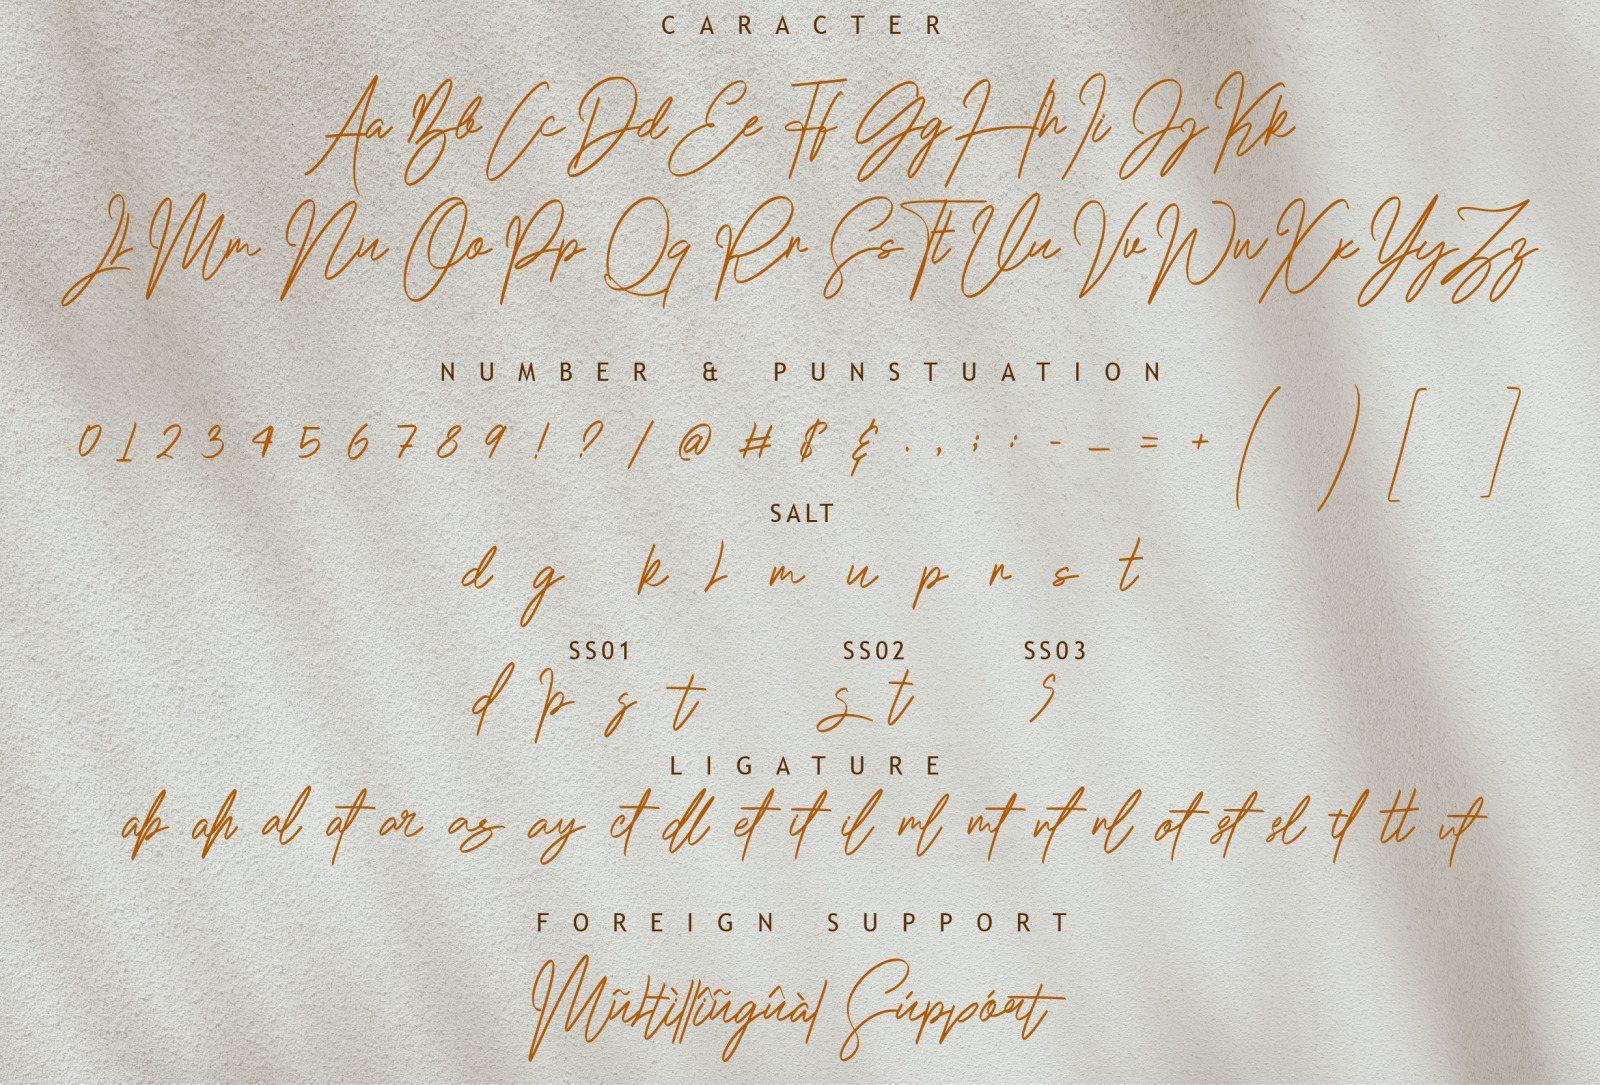 CARACTER
Aa Bb Cc Dd Ee Ff Gg Hh Ii Jj Kk
Ll Mm Nn Oo Pp Qq Rr Ss Tt Uu Vv Ww Xx Yy Zz
NUMBER & PUNSTUATION
0 1 2 3 4 5 6 7 8 9 ! ? / @ # $ & . , ; : - _ = + ( ) [ ]
SALT
d g k l m u p r s t
SS01 SS02 SS03
d p s t s t s
LIGATURE
ab ah al at ar as ay ct dl et it il ml mt nt nl ot st sl tl tt ut
FOREIGN SUPPORT
Múltìllîñgúàl Súppórt